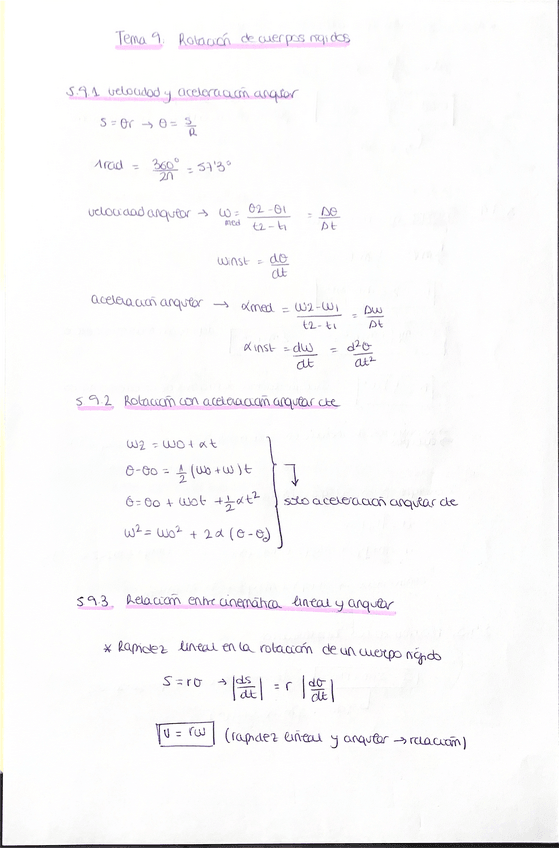 Tema 9. Rotación de cuerpos rígidos
5.9.1 velocidad y aceleración angular
S = θr → θ = S/R
1rad = 360°/2π = 57'3°
velocidad angular → ω med = θ2-θ1/t2-t1 = Δθ/Δt
ωinst = dθ/dt
aceleración angular → αmed = ω2-ω1/t2-t1 = Δω/Δt
αinst = dω/dt = d²θ/dt²
5 9.2 Rotación con aceleración angular cte
ω2 = ω0 + αt
θ-θ0 = 1/2 (ω0+ω)t
θ=θ0 + ω0t + 1/2 αt²
solo aceleración angular cte
ω² = ω0² + 2α (θ-θ0)
5 9.3. Relación entre cinemática lineal y angular
* Rapidez lineal en la rotación de un cuerpo rígido
S = rθ → |ds/dt| = r |dθ/dt|
v = rω (rapidez lineal y angular → relación)